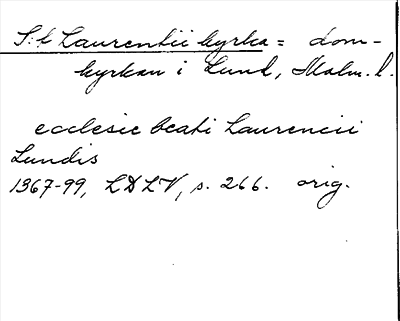 S:t Laurentii kyrka = dom-
kyrkan i Lund, Malm. l.
ecclesie beati Laurencii
Lundis
1367-99, LDLV, s. 266. orig.